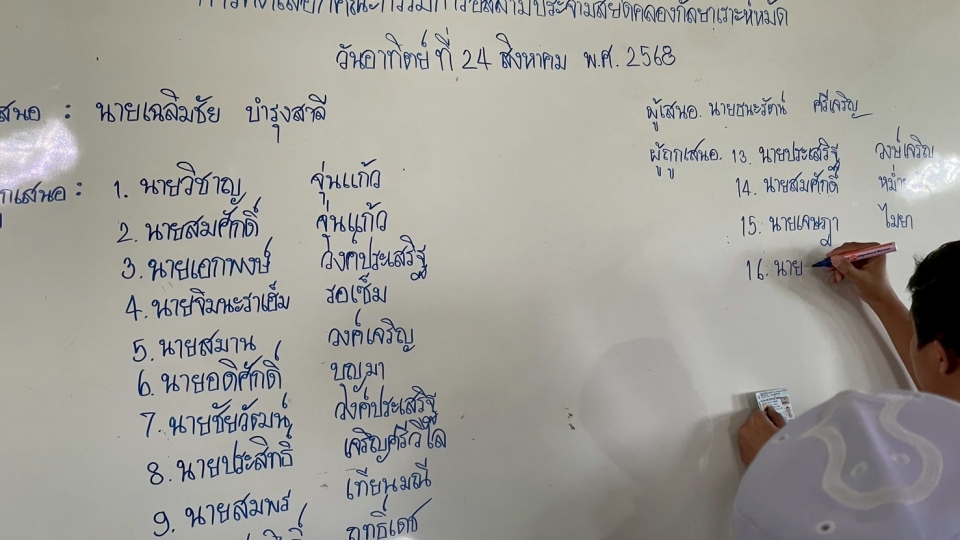 การคัดเลือกคณะกรรมการอิสลามประจำมัสยิดคลองกัลยาเราะห์หมัด
วันอาทิตย์ ที่ 24 สิงหาคม พ.ศ. 2568
สนอ : นายเฉลิมชัย บำรุงสาลี
กเสนอ :
1. นายวิชาญ จุ่นแก้ว
2. นายสมศักดิ์ จุ่นแก้ว
3. นายเอกพงษ์ วงค์ประเสริฐ
4. นายจิมนะราเฮ็ม รอเซ็ม
5. นายสมาน วงค์เจริญ
6. นายอดิศักดิ์ บุญมา
7. นายชัยวัฒน์ วงค์ประเสริฐ
8. นายประสิทธิ์ เจริญศรีวิไล
9. นายสมพร เทียนมณี
ฤทธิ์เดช
ผู้เสนอ. นายธนะรัตน์ ศรีเจริญ
ผู้ถูกเสนอ. 13. นายประเสริฐ วงษ์เจริญ
14. นายสมศักดิ์
15. นายเจษฎา ไมยา
16. นาย